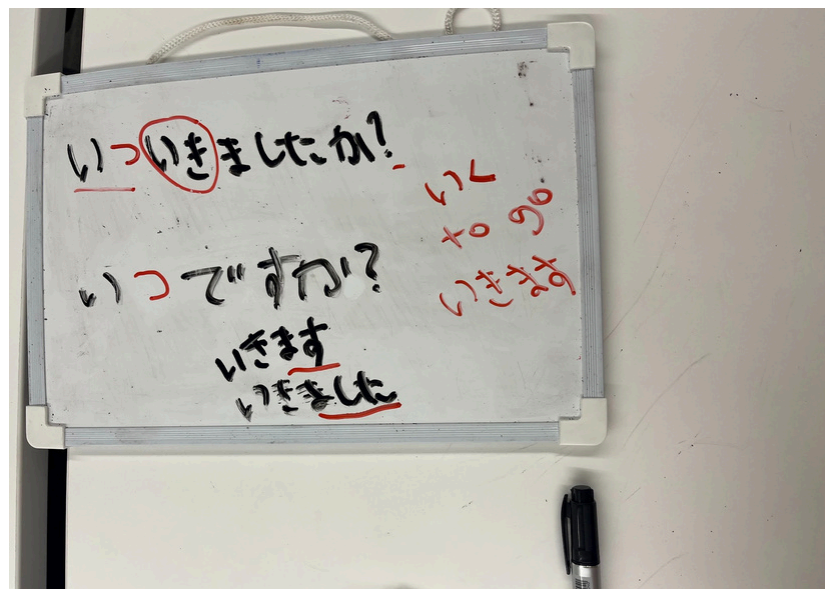 いつ いきましたか?
いつですか?
いきます
いきました
いく
to go
いきます